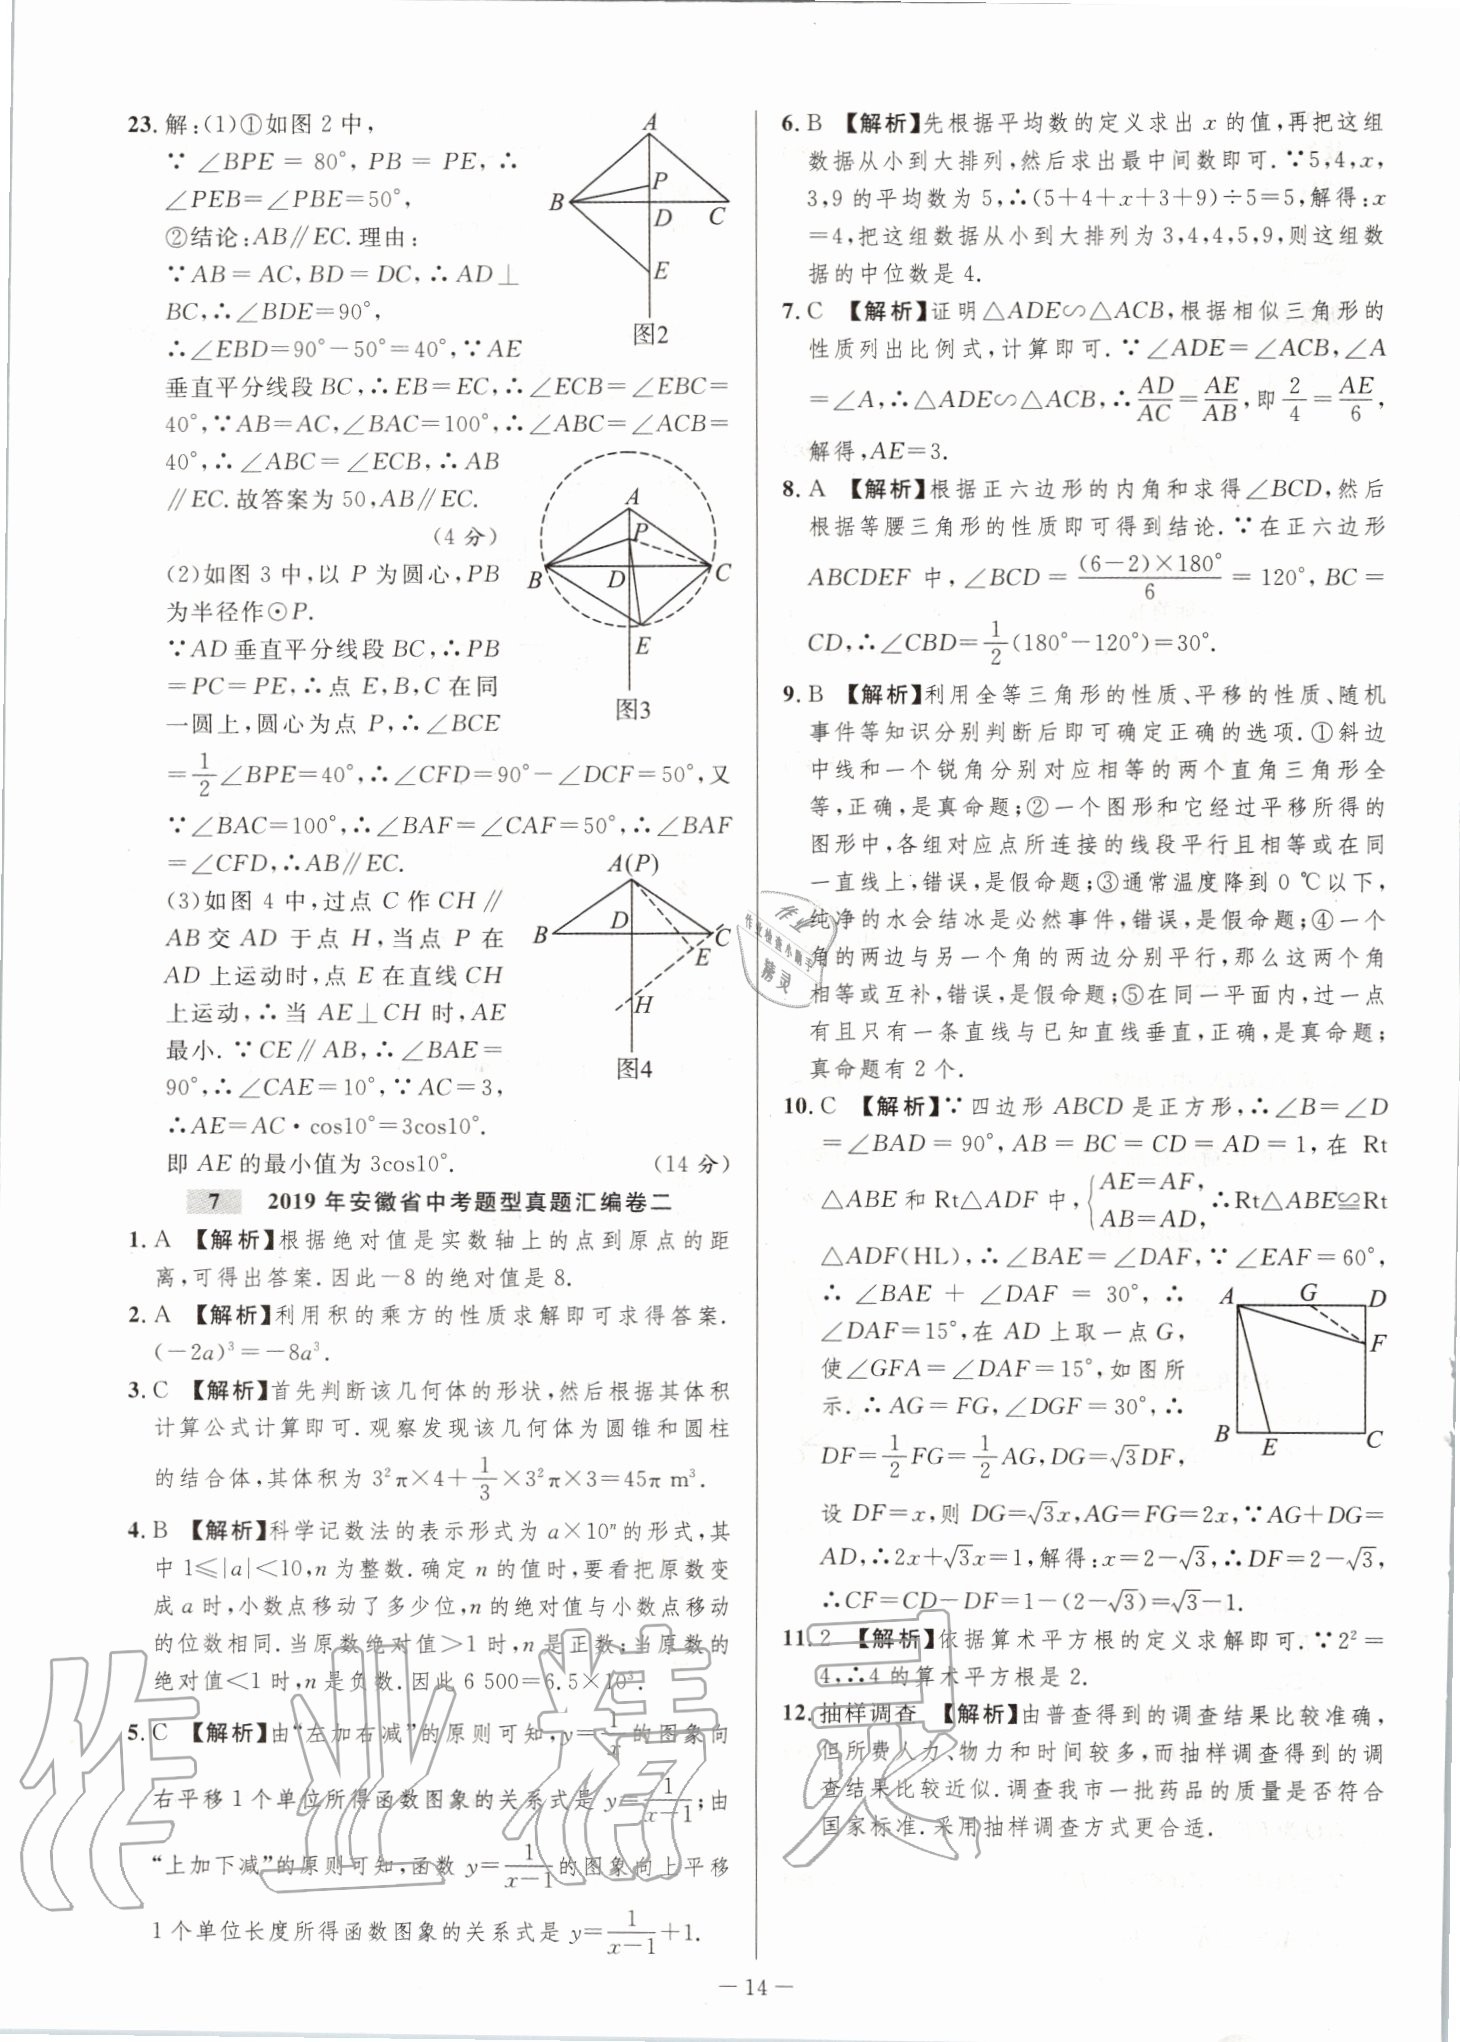 23. 解:(1)①如图 2 中,
∵ ∠BPE = 80°, PB = PE, ∴
∠PEB=∠PBE=50°,
②结论:AB∥EC.理由:
∵AB=AC,BD=DC,∴AD⊥
BC,∴∠BDE=90°,
∴∠EBD=90°-50°=40°,∵AE
垂直平分线段 BC,∴EB=EC,∴∠ECB=∠EBC=
40°,∵AB=AC,∠BAC=100°,∴∠ABC=∠ACB=
40°,∴∠ABC=∠ECB,∴AB
∥EC.故答案为 50,AB∥EC.
(4 分)
(2)如图 3 中,以 P 为圆心,PB
为半径作⊙P.
∵AD 垂直平分线段 BC,∴PB
=PC=PE,∴点 E,B,C 在同
一圆上,圆心为点 P,∴∠BCE
=1/2∠BPE=40°,∴∠CFD=90°-∠DCF=50°,又
∵∠BAC=100°,∴∠BAF=∠CAF=50°,∴∠BAF
=∠CFD,∴AB∥EC.
(3)如图 4 中,过点 C 作 CH∥
AB 交 AD 于点 H,当点 P 在
AD 上运动时,点 E 在直线 CH
上运动,∴当 AE⊥CH 时,AE
最小.∵CE∥AB,∴∠BAE=
90°,∴∠CAE=10°,∵AC=3,
∴AE=AC·cos10°=3cos10°.
即 AE 的最小值为 3cos10°. (14 分)
A
B
P
D
C
E
图2
A
P
B
D
C
E
图3
A(P)
B
D
C
E
H
图4
7 2019 年安徽省中考题型真题汇编卷二
1. A 【解析】根据绝对值是实数轴上的点到原点的距
离,可得出答案.因此-8 的绝对值是 8.
2. A 【解析】利用积的乘方的性质求解即可求得答案.
(-2a)³=-8a³.
3. C 【解析】首先判断该几何体的形状,然后根据其体积
计算公式计算即可.观察发现该几何体为圆锥和圆柱
的结合体,其体积为 3²π×4+1/3×3²π×3=45π m³.
4. B 【解析】科学记数法的表示形式为 a×10ⁿ 的形式,其
中 1≤|a|<10,n 为整数.确定 n 的值时,要看把原数变
成 a 时,小数点移动了多少位,n 的绝对值与小数点移动
的位数相同.当原数绝对值>1 时,n 是正数;当原数的
绝对值<1 时,n 是负数.因此 6 500=6.5×10³.
5. C 【解析】由“左加右减”的原则可知,y=1/x的图象向
右平移 1 个单位所得函数图象的关系式是 y=1/(x-1);由
“上加下减”的原则可知,函数 y=1/(x-1)的图象向上平移
1 个单位长度所得函数图象的关系式是 y=1/(x-1)+1.
6. B 【解析】先根据平均数的定义求出 x 的值,再把这组
数据从小到大排列,然后求出最中间数即可.∵5,4,x,
3,9 的平均数为 5,∴(5+4+x+3+9)÷5=5,解得:x
=4,把这组数据从小到大排列为 3,4,4,5,9,则这组数
据的中位数是 4.
7. C 【解析】证明△ADE∽△ACB,根据相似三角形的
性质列出比例式,计算即可.∵∠ADE=∠ACB,∠A
=∠A,∴△ADE∽△ACB,∴AD/AC=AE/AB,即2/4=AE/6,
解得,AE=3.
8. A 【解析】根据正六边形的内角和求得∠BCD,然后
根据等腰三角形的性质即可得到结论.∵在正六边形
ABCDEF 中,∠BCD=(6-2)×180°/6=120°,BC=
CD,∴∠CBD=1/2(180°-120°)=30°.
9. B 【解析】利用全等三角形的性质、平移的性质、随机
事件等知识分别判断后即可确定正确的选项.①斜边
中线和一个锐角分别对应相等的两个直角三角形全
等,正确,是真命题;②一个图形和它经过平移所得的
图形中,各组对应点所连接的线段平行且相等或在同
一直线上,错误,是假命题;③通常温度降到 0 ℃以下,
纯净的水会结冰是必然事件,错误,是假命题;④一个
角的两边与另一个角的两边分别平行,那么这两个角
相等或互补,错误,是假命题;⑤在同一平面内,过一点
有且只有一条直线与已知直线垂直,正确,是真命题;
真命题有 2 个.
10. C 【解析】∵四边形 ABCD 是正方形,∴∠B=∠D
=∠BAD=90°,AB=BC=CD=AD=1,在 Rt
△ABE 和 Rt△ADF 中,{AE=AF, AB=AD,∴Rt△ABE≌Rt
△ADF(HL),∴∠BAE=∠DAF,∵∠EAF=60°,
∴ ∠BAE + ∠DAF = 30°, ∴
∠DAF=15°,在 AD 上取一点 G,
使∠GFA=∠DAF=15°,如图所
示.∴AG=FG,∠DGF=30°,∴
DF=1/2FG=1/2AG,DG=√3DF,
设 DF=x,则 DG=√3x,AG=FG=2x,∵AG+DG=
AD,∴2x+√3x=1,解得:x=2-√3,∴DF=2-√3,
∴CF=CD-DF=1-(2-√3)=√3-1.
A
G
D
F
B
E
C
11. 2 【解析】依据算术平方根的定义求解即可.∵2²=
4,∴4 的算术平方根是 2.
12. 抽样调查 【解析】由普查得到的调查结果比较准确,
但所费人力、物力和时间较多,而抽样调查得到的调
查结果比较近似.调查我市一批药品的质量是否符合
国家标准.采用抽样调查方式更合适.
作业
作业检查小助手
精灵
作业精灵
— 14 —